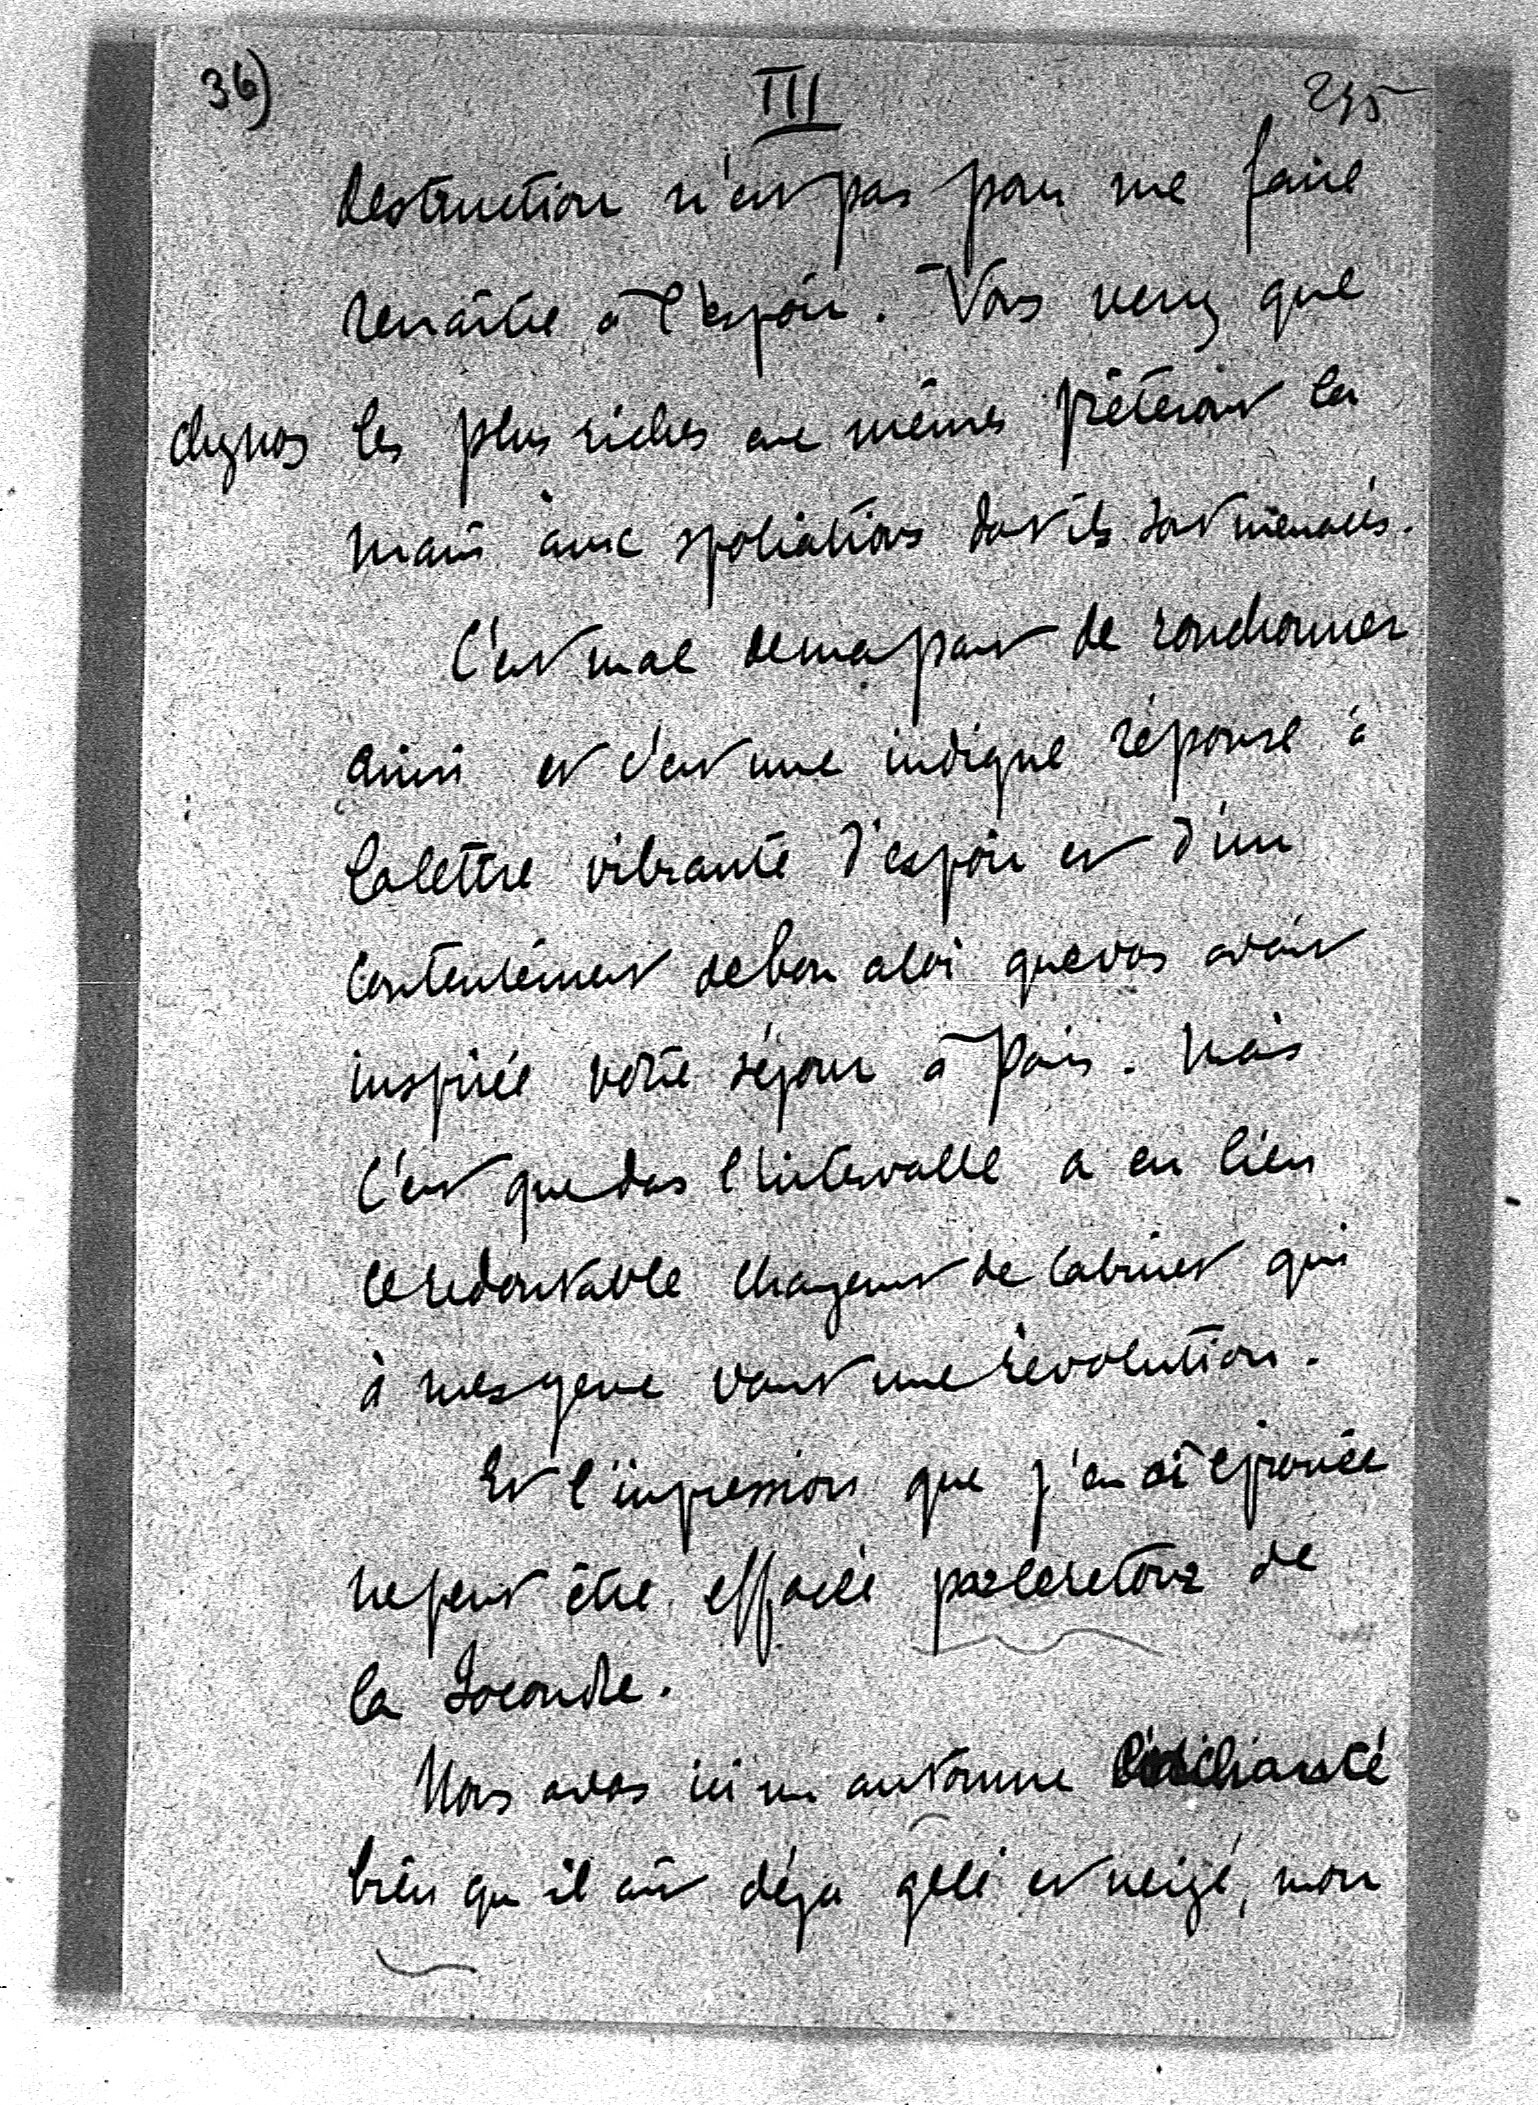 36)
III
235
destruction n'est pas pour me faire
renaître à l'espoir. Vous verrez que
chez nous les plus riches eux mêmes prêteront la
main aux spoliations dont ils sont menacés.
C'est mal de ma part de ronchonner
ainsi et c'est une indigne réponse à
la lettre vibrante d'espoir et d'un
contentement de bon aloi que vous avait
inspirée votre séjour à Paris. Mais
c'est que dans l'intervalle a eu lieu
ce redoutable changement de Cabinet qui
à mes yeux vaut une révolution.
Et l'impression que j'en ai éprouvée
ne peut être effacée par le retour de
la Joconde.
Nous avons ici un automne
bien qu'il ait déjà gelé et neigé, mon